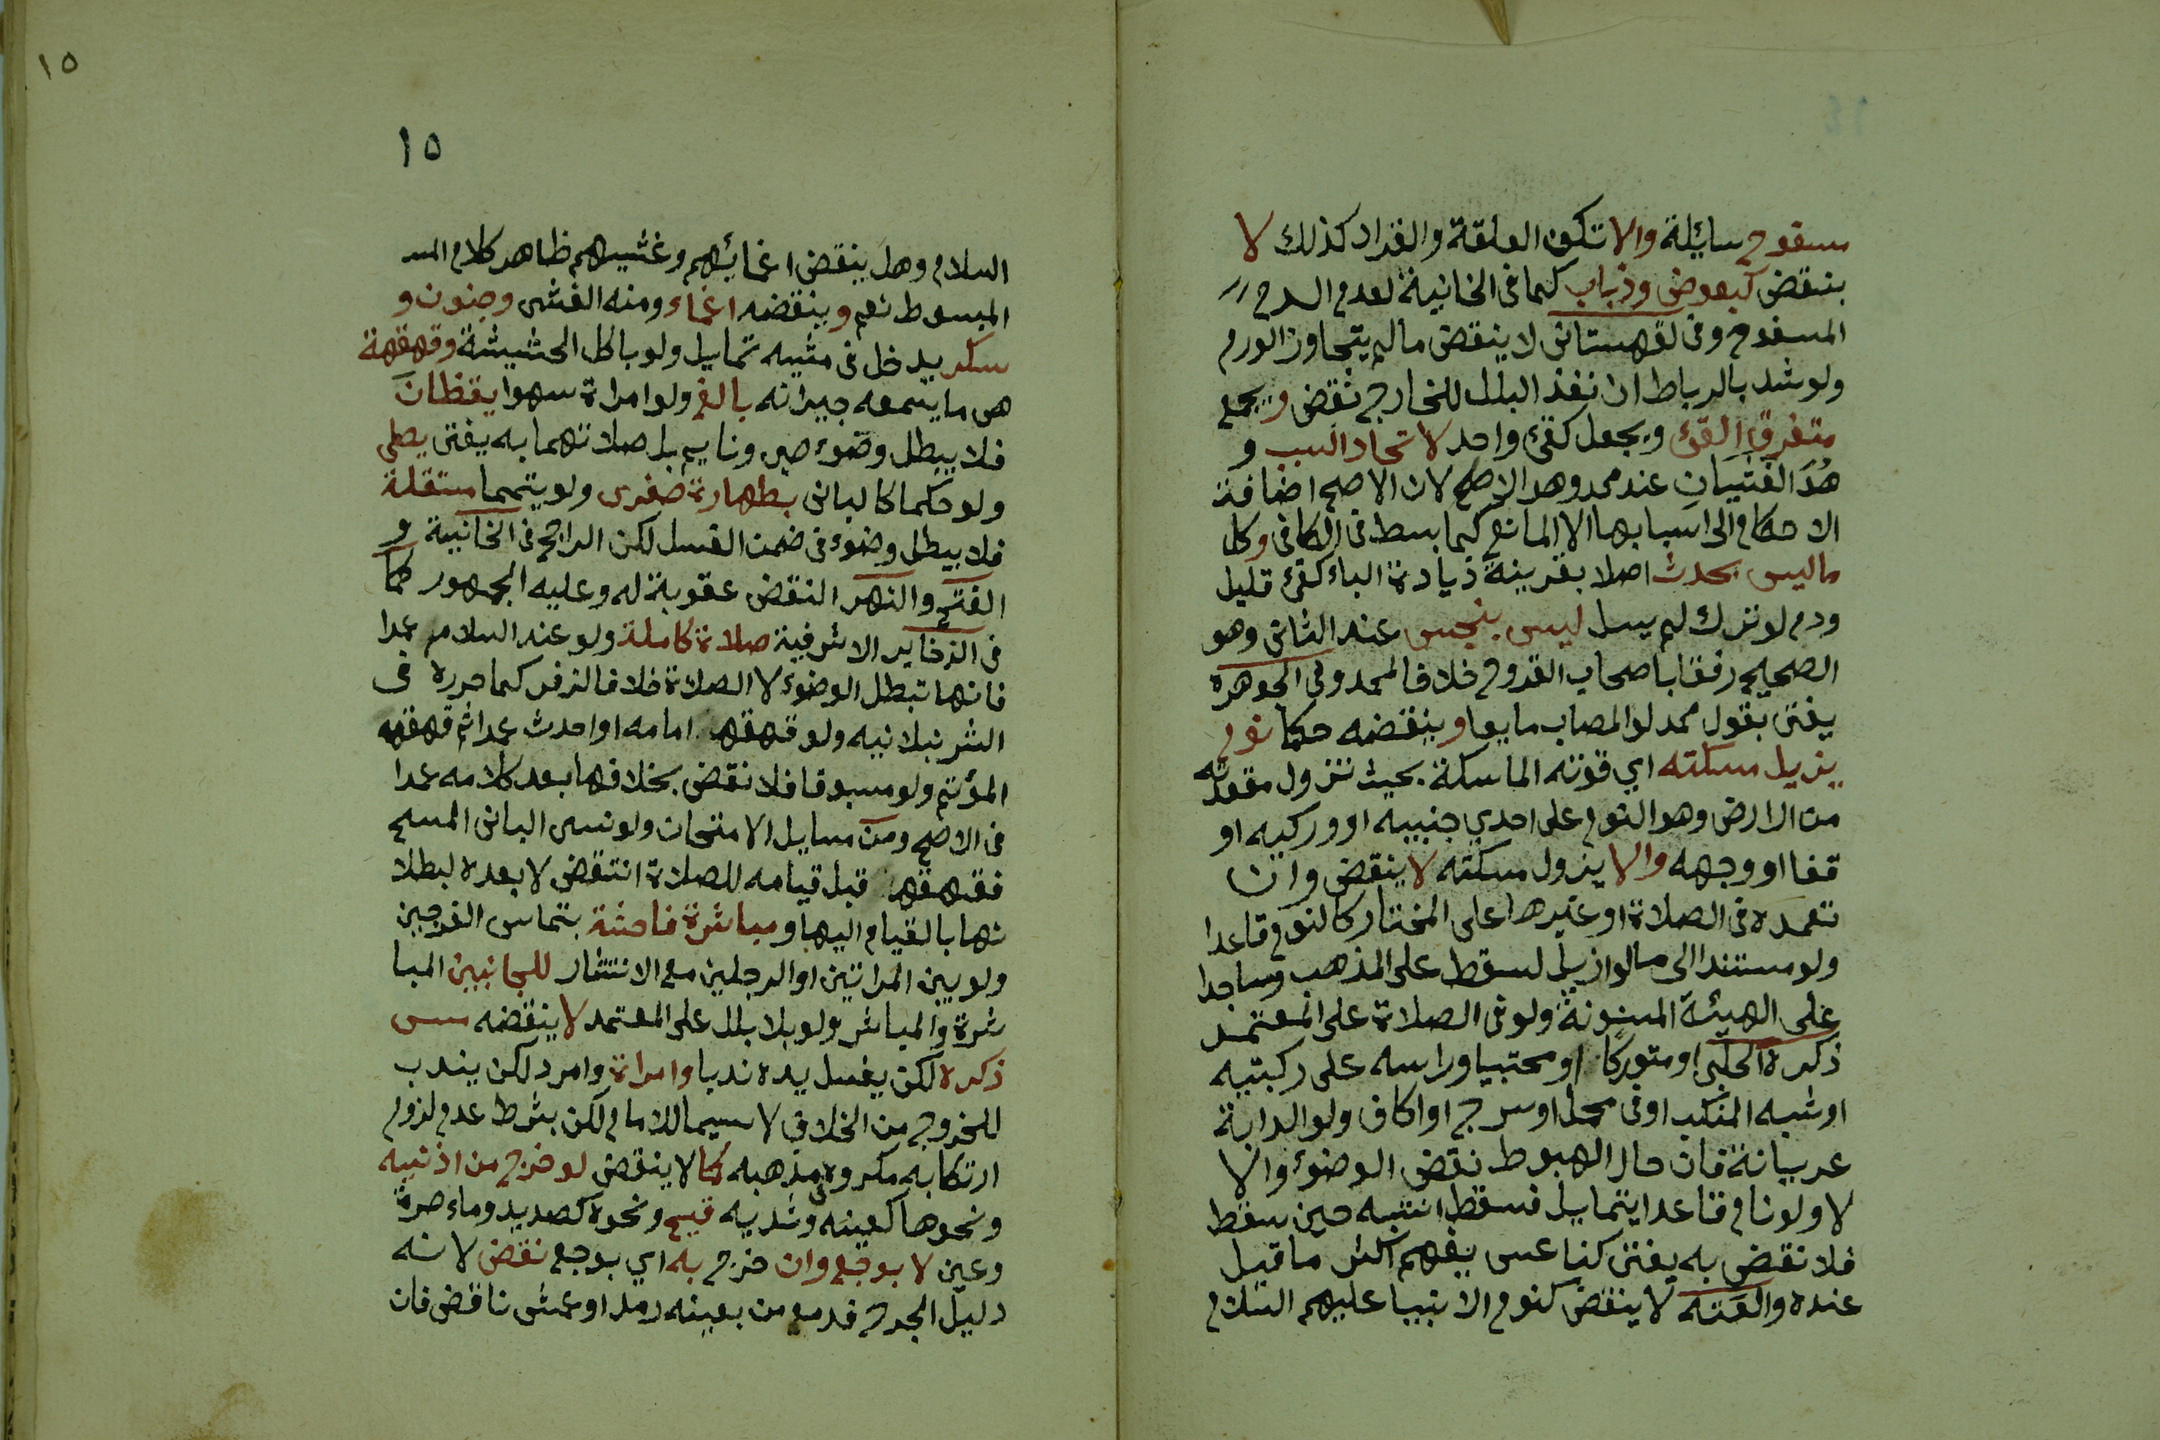 مسفوح سايلة والا تكون العلقة والقراد كذلك لا
ينقض كبعوض وذباب كما فى الخانية لعدم الدم
المسفوح وفى القهستانى لا ينقض مالم يتجاوز الورم
ولو شد بالرباط ان نفذ البلل للخارج نقض ويجمع
متفرق القئ ويجعل كقئ واحد لاتحاد السبب و
هُوَ الغثيان عند محمد وهو الاصح لان الاصح اضافة
الاحكام الى اسبابها الا لمانع كما بسط فى الكافى وكل
ماليس بحدث اصلا بقرينة زيادة الباء كقئ قليل
ودم لو ترك لم يسل ليس بنجس عند الثانى وهو
الصحيح رفقا باصحاب القروح خلافا لمحمد وفى الجوهرة
يفتى بقول محمد لو المصاب مايعا وينقضه حكما نوم
يزيل مسكته اي قوته الماسكة بحيث تزول مقعدته
من الارض وهو النوم على احدي جنبيه او وركيه او
قفا او وجهه والا يزول مسكته لا ينقض وان
تعمده فى الصلاة او غيرها على المختار كالنوم قاعدا
ولو مستندا الى مالو ازيل لسقط على المذهب وساجدا
على الهيئة المسنونة ولو فى الصلاة على المعتمد
ذكره الحلبى او متوركا او محتبيا وراسه على ركبتيه
او شبه المنكب او فى محمل او سرج او اكاف ولو الدابة
عريانة فان حال الهبوط نقض الوضوء والا
لا ولو نام قاعدا يتمايل فسقط انتبه حين سقط
فلا نقض به يفتى كناعس يفهم اكثر ما قيل
عنده والعته لا ينقض كنوم الانبيا عليهم السلام
١٥
١٥
السلام وهل ينقض اغمايهم وغشيهم ظاهر كلام المبـ
المبسوط نعم وينقضه اغماء ومنه الغشى وجنون و
سكر يدخل فى مشيه تمايل ولو باكل الحشيشة وقهقهة
هى ما يسمعه جيرانه بالغ ولو امراة سهوا يقظان
فلا يبطل وضوء صبى ونايم بل صلاتهما به يفتى يصلى
ولو حكما كالبانى بطهارة صغرى ولو بتيمما مستقلة
فلا يبطل وضوء فى ضمن الغسل لكن الراجح فى الخانية و
الفتح والنهر النقض عقوبة له وعليه الجمهور كما
فى الذخاير الاشرفية صلاة كاملة ولو عند السلام عمدا
فانها تبطل الوضوء لا الصلاة خلافا لزفر كما حرره فى
الشرنبلانيه ولو قهقهه امامه او احدث عمدا ثم قهقهه
المؤتم ولو مسبوقا فلا نقض بخلافها بعد كلامه عمدا
فى الاصح ومن مسايل الامتحان ولو نسى البانى المسح
فقهقهه قبل قيامه للصلاة انتقض لا بعده لبطلا
نها بالقيام اليها ومباشرة فاحشة بتماس الفرجين
ولو بين المراتين او الرجلين مع الانتشار للجانبين المبا
شرة والمباشر ولو بلا بلل على المعتمد لا ينقضه مس
ذكره لكن يغسل يده ندبا وامراة وامرد لكن يندب
للخروج من الخلاف لا سيما للامام لكن بشرط عدم لزوم
ارتكابه مكروه مذهبه كما لا ينقض لو خرج من اذنيه
ونحوها كعينه وثديه قيح ونحوه كصديد وماء صرة
وعين لا بوجع وان خرج به اي بوجع نقض لانه
دليل الجرح فدمع من بعينه رمد او عمش ناقض فان